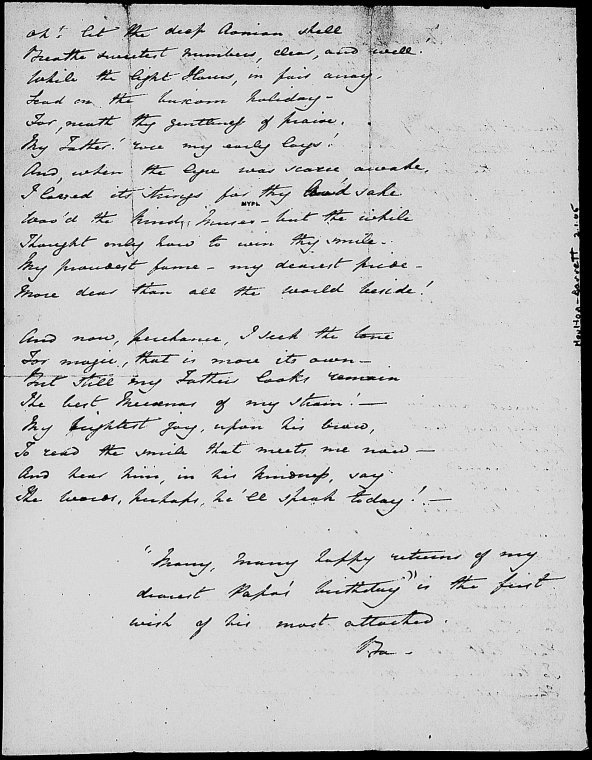 Oh! let the deep Aonian shell
Breathe sweetest numbers, clear, and well.
While the light Hours, in fair array,
Lead on the buxom holiday –
For, 'neath thy gentleness of praise,
My Father! rose my early lays!
And, when the lyre was scarce awake,
I loved its strings for thy lov'd sake
Woo'd the kind Muses – but the while
NYPL
Thought only how to win thy smile –
My proudest fame – my dearest pride –
More dear than all the world beside!
And now, perchance, I seek the tone
For magic, that is more its own –
But still my Father's looks remain
The best Mecænas of my strain! –
My brightest joy, upon his brow,
To read the smile that meets me now –
And hear him, in his kindness, say
The words, perhaps, he'll speak today! –
"Many, many happy returns of my
dearest Papa's birthday" is the first
wish of his most attached
Ba –
Moulton-Barrett 2.1.05